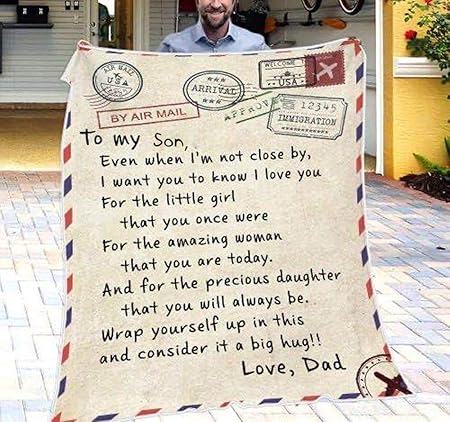 AIR MAIL
USA
ARRIVAL
WELCOME
USA
BY AIR MAIL
APPROVE
12345
IMMIGRATION
To my Son,
Even when I'm not close by,
I want you to know I love you
For the little girl
that you once were
For the amazing woman
that you are today.
And for the precious daughter
that you will always be.
Wrap yourself up in this
and consider it a big hug!!
Love, Dad